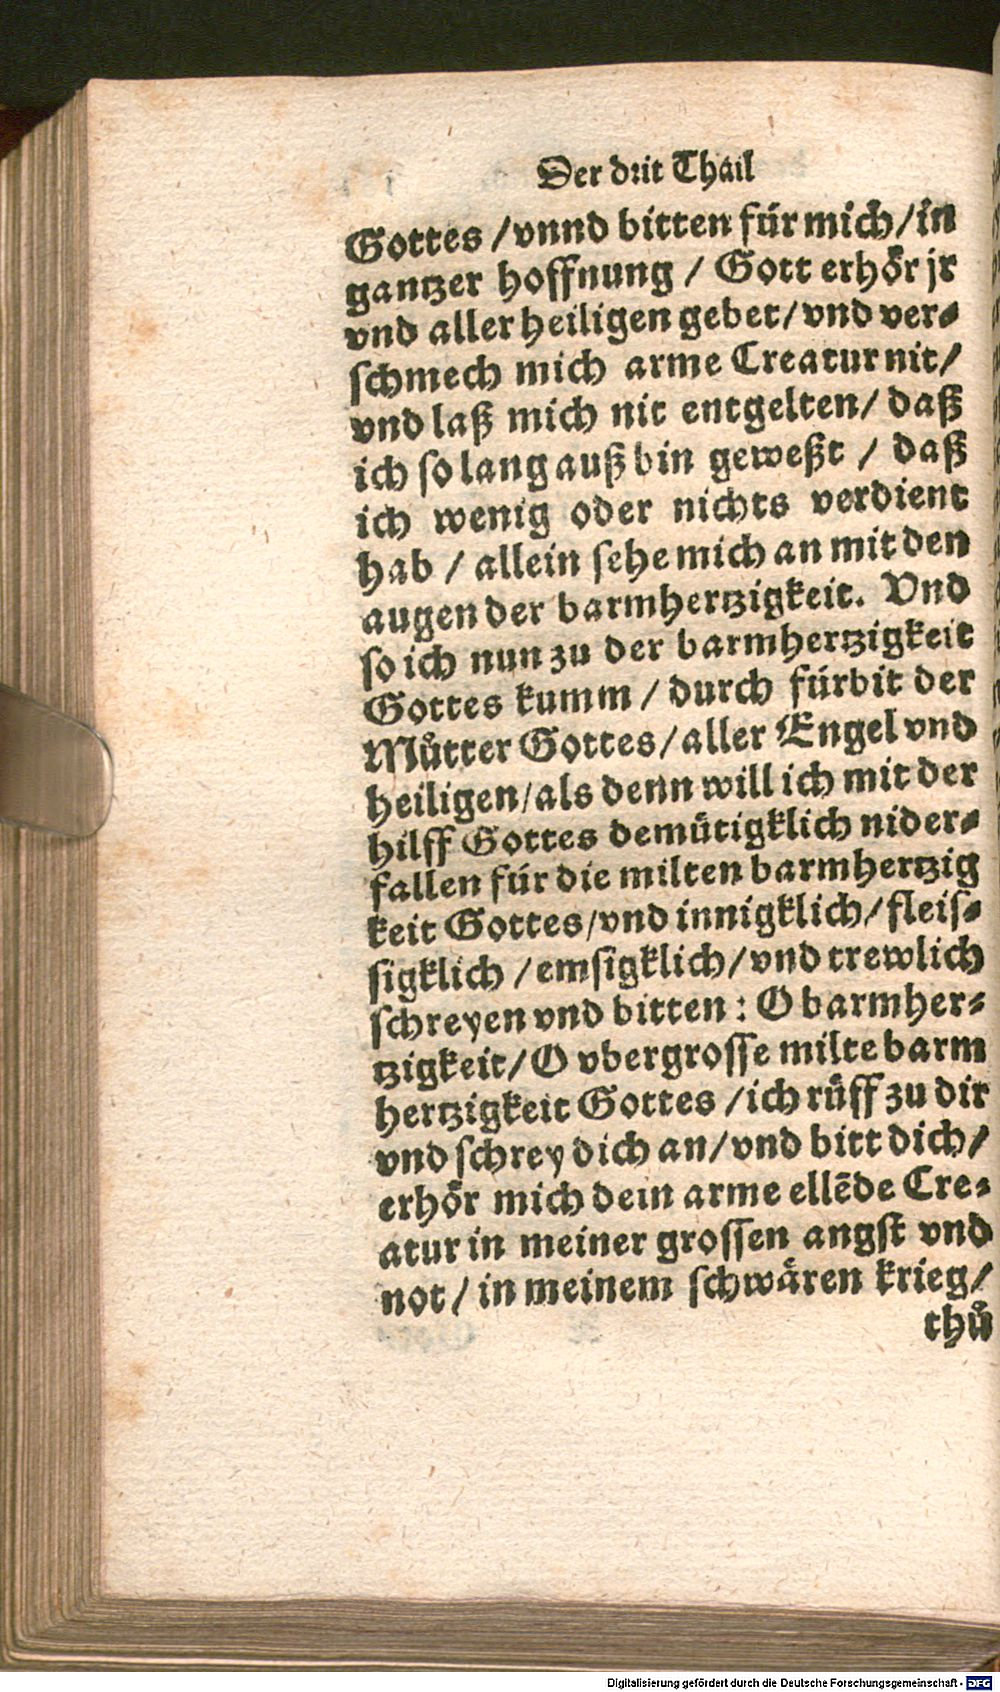 Der drit Thail
Gottes / vnnd bitten für mich / in
gantzer hoffnung / Gott erhör jr
vnd aller heiligen gebet / vnd ver-
schmech mich arme Creatur nit /
vnd laß mich nit entgelten / daß
ich so lang auß bin geweßt / daß
ich wenig oder nichts verdient
hab / allein sehe mich an mit den
augen der barmhertzigkeit. Vnd
so ich nun zu der barmhertzigkeit
Gottes kumm / durch fürbit der
Můtter Gottes / aller Engel vnd
heiligen / als denn will ich mit der
hilff Gottes demütigklich nider-
fallen für die milten barmhertzig
keit Gottes / vnd innigklich / fleis-
sigklich / emsigklich / vnd trewlich
schreyen vnd bitten : O barmher-
tzigkeit / O vbergrosse milte barm
hertzigkeit Gottes / ich růff zu dir
vnd schrey dich an / vnd bitt dich /
erhör mich dein arme ellēde Cre-
atur in meiner grossen angst vnd
not / in meinem schwären krieg /
thů
Digitalisierung gefördert durch die Deutsche Forschungsgemeinschaft - DFG